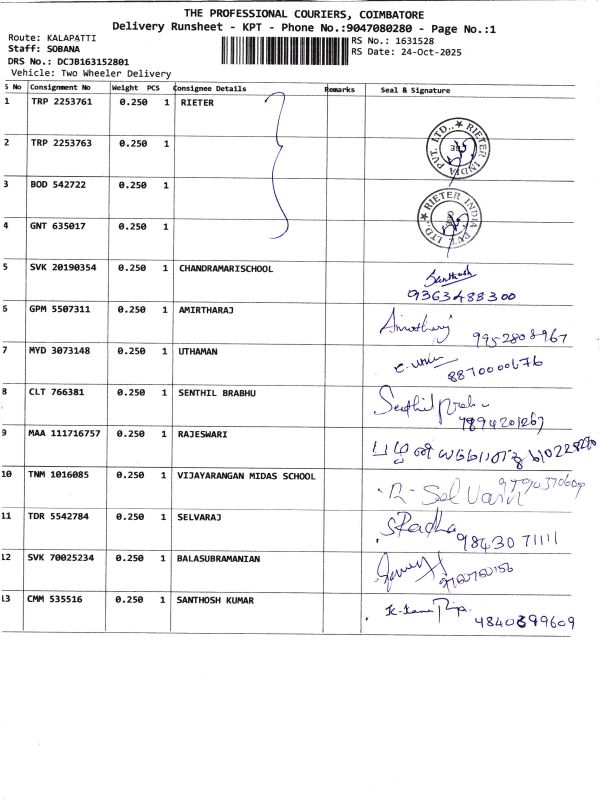 THE PROFESSIONAL COURIERS, COIMBATORE
Delivery Runsheet - KPT - Phone No.:9047080280 - Page No.:1
Route: KALAPATTI
Staff: SOBANA
DRS No.: DCJB163152801
Vehicle: Two Wheeler Delivery
RS No.: 1631528
RS Date: 24-Oct-2025
S No Consignment No Weight PCS Consignee Details Remarks Seal & Signature
1 TRP 2253761 0.250 1 RIETER
2 TRP 2253763 0.250 1
RIETER INDIA PVT. LTD.,
3 BOD 542722 0.250 1
RIETER INDIA PVT. LTD.,
4 GNT 635017 0.250 1
5 SVK 20190354 0.250 1 CHANDRAMARISCHOOL Santhosh
9363488300
6 GPM 5507311 0.250 1 AMIRTHARAJ
9952808967
7 MYD 3073148 0.250 1 UTHAMAN
8870000676
8 CLT 766381 0.250 1 SENTHIL BRABHU
9894201267
9 MAA 111716757 0.250 1 RAJESWARI
10 TNM 1016085 0.250 1 VIJAYARANGAN MIDAS SCHOOL
11 TDR 5542784 0.250 1 SELVARAJ SRadha
98430 71111
12 SVK 70025234 0.250 1 BALASUBRAMANIAN
13 CMM 535516 0.250 1 SANTHOSH KUMAR
4840399609